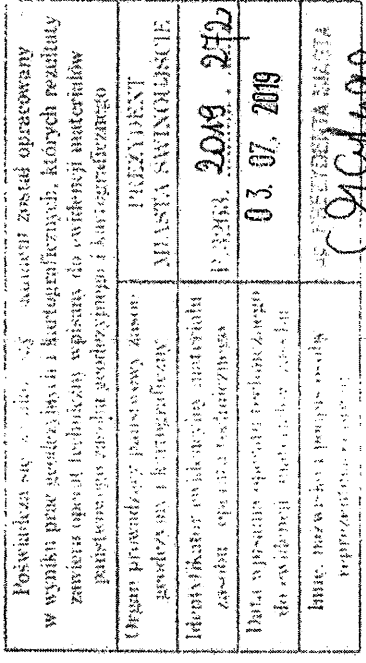 Poświadcza się, że został opracowany
w wyniku prac geodezyjnych i kartograficznych, których rezultaty
zawiera operat techniczny wpisany do ewidencji materiałów
państwowego zasobu geodezyjnego i kartograficznego
Organ prowadzący państwowy zasób
geodezyjny i kartograficzny
PREZYDENT
MIASTA ŚWINOUJŚCIE
Identyfikator ewidencyjny materiału
zasobu - operatu technicznego
P.3263. 2019. 272
Data wpisania operatu technicznego
do ewidencji materiałów zasobu
03. 07. 2019
Imię, nazwisko i podpis osoby
reprezentującej organ
PREZYDENTA MIASTA